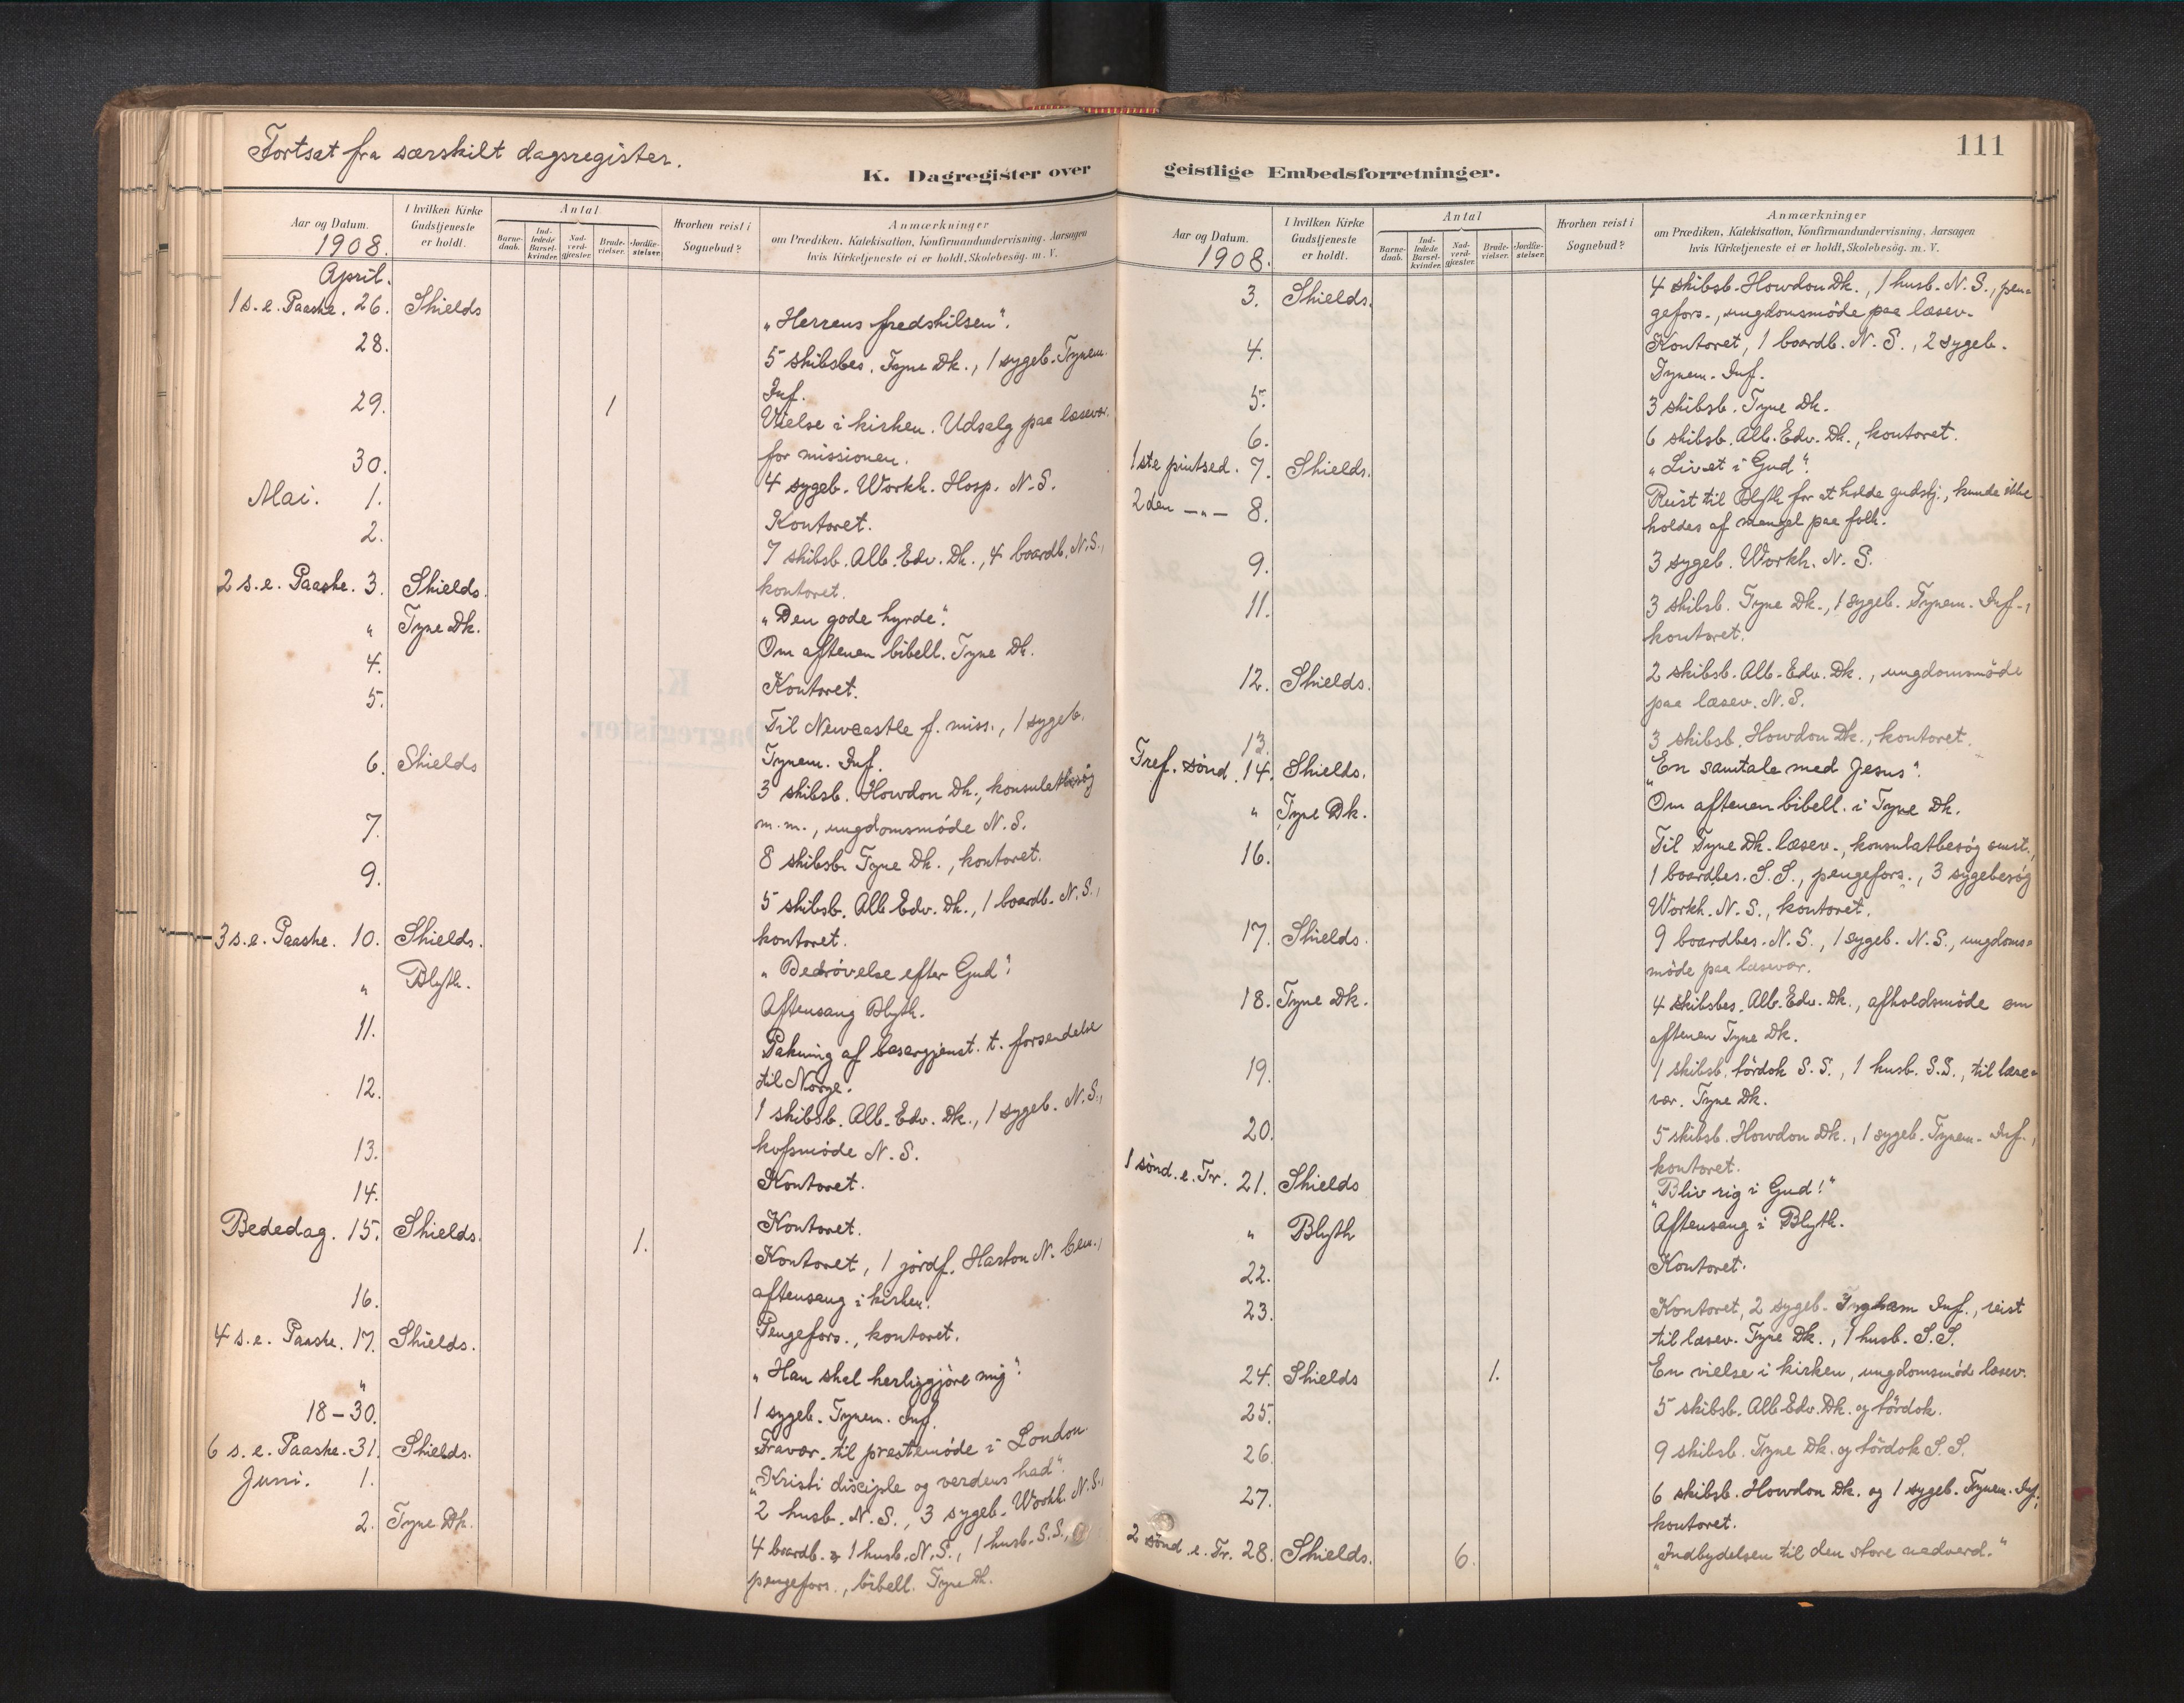 Fortsat fra særskilt dagsregister.
K. Dagregister over
Aar og Datum.
1908.
I hvilken Kirke Gudstjeneste er holdt.
Antal
Barnedaab.
Indledede Barselkvinder.
Nadverdgjæster.
Brudevielser.
Jordfæstelser.
Hvorhen reist i Sognebud?
Anmærkninger
om Prædiken, Katekisation, Konfirmandundervisning, Aarsagen
hvis Kirketjeneste ei er holdt, Skolebesøg. m. V.
April.
1 s. e. Paaske. 26. Shields „Herrens fredshilsen".
28. 5 skibsbes. Tyne Dk., 1 sygeb. Tynem.
Inf.
29. 1 Vielse i kirken. Udsalg paa læsevær.
for missionen.
30. 4 sygeb. Workh. Hosp. N. S.
Mai. 1. Kontoret.
2. 7 skibsb. Alb. Edv. Dk., 4 boardb. N. S.,
kontoret.
2 s. e. Paaske. 3. Shields. „Den gode hyrde".
" Tyne Dk. Om aftenen bibell. Tyne Dk.
4. Kontoret.
5. Til Newcastle f. miss., 1 sygeb.
Tynem. Inf.
6. Shields 3 skibsb. Howdon Dk., konsulatbesøg
m. m., ungdomsmöde N. S.
7. 8 skibsb. Tyne Dk., kontoret.
9. 5 skibsb. Alb. Edv. Dk., 1 boardb. N. S.,
kontoret.
3 s. e. Paaske. 10. Shields. „Bedrövelse efter Gud".
" Blyth. Aftensang Blyth.
11. Pakning af basargjenst. t. forsendelse
til Norge.
12. 1 skibsb. Alb. Edv. Dk., 1 sygeb. N. S.,
möde N. S.
13. Kontoret.
14. Kontoret.
Bededag. 15. Shields. 1. Kontoret, 1 jordf. Harton N. Cem.,
aftensang i kirken.
16. Pengefors., kontoret.
4 s. e. Paaske. 17. Shields. „Han skal herliggjöre mig".
" 1 sygeb. Tynem. Inf.
18-30. Fravær. til prestemöde i London
6 s. e. Paaske. 31. Shields. „Kristi disciple og verdens had".
Juni. 1. 2 husb. N. S., 3 sygeb. Workh. N. S.,
2. Tyne Dk. 4 boardb. & 1 husb. N. S., 1 husb. S. S.,
pengefors., bibell. Tyne Dk.
111
geistlige Embedsforretninger.
Aar og Datum.
1908.
I hvilken Kirke Gudstjeneste er holdt.
Antal
Barnedaab.
Indledede Barselkvinder.
Nadverdgjæster.
Brudevielser.
Jordfæstelser.
Hvorhen reist i Sognebud?
Anmærkninger
om Prædiken, Katekisation, Konfirmandundervisning, Aarsagen
hvis Kirketjeneste ei er holdt, Skolebesøg. m. V.
3. Shields. 4 skibsb. Howdon Dk., 1 husb. N. S., pen-
gefors., ungdomsmöde paa læsev.
4. Kontoret, 1 boardb. N. S., 2 sygeb.
Tynem. Inf.
5. 3 skibsb. Tyne Dk.
6. 6 skibsb. Alb. Edv. Dk., kontoret.
1ste pintsed. 7. Shields. „Livet i Gud".
2den —„— 8. Reist til Blyth for at holde gudstj., kunde ikke
holdes af mangel paa folk.
9. 3 sygeb. Workh. N. S.
11. 3 skibsb. Tyne Dk., 1 sygeb. Tynem. Inf.,
kontoret.
12. Shields. 2 skibsb. Alb. Edv. Dk., ungdomsmöde
paa læsev. N. S.
13. 3 skibsb. Howdon Dk., kontoret.
Tref. sönd. 14. Shields. „En samtale med Jesus".
" Tyne Dk. Om aftenen bibell. i Tyne Dk.
16. Til Tyne Dk. læsev., konsulatbesøg smst.,
1 boardbes. S. S., pengefors., 3 sygebesög
Workh. N. S., kontoret.
17. Shields. 9 boardbes. N. S., 1 sygeb. N. S., ungdoms-
möde paa læsevær.
18. Tyne Dk. 4 skibsbes. Alb. Edv. Dk., afholdsmöde om
aftenen Tyne Dk.
19. 1 skibsb. tördok S. S., 1 husb. S. S., til læse-
vær. Tyne Dk.
20. 5 skibsb. Howdon Dk., 1 sygeb. Tynem. Inf.,
kontoret.
1 sönd. e. Tr. 21. Shields „Bliv rig i Gud!"
" Blyth Aftensang i Blyth.
22. Kontoret.
23. Kontoret, 2 sygeb. Ingham Inf., reist
til læsev. Tyne Dk., 1 husb. S. S.
24. Shields 1. En vielse i kirken, ungdomsmöde læsev.
25. 5 skibsb. Alb. Edv. Dk. og tördok.
26. 9 skibsb. Tyne Dk. og tördok S. S.
27. 6 skibsb. Howdon Dk. og 1 sygeb. Tynem. Inf.,
kontoret.
2 sönd. e. Tr. 28. Shields. 6. „Indbydelsen til den store nadverd."